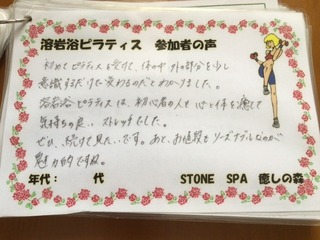 溶岩浴ピラティス 参加者の声
初めてピラティスを受けて、体の中、外の部分を少し
意識するだけで変わるのだとわかりました。
溶岩浴ピラティスは、初心者の人も心と体を癒して
気持ちの良い、ストレッチでした。
ぜひ、続けて見たいです。あと、お値段もリーズナブルなのが
魅力的ですね。
年代： 代 STONE SPA 癒しの森